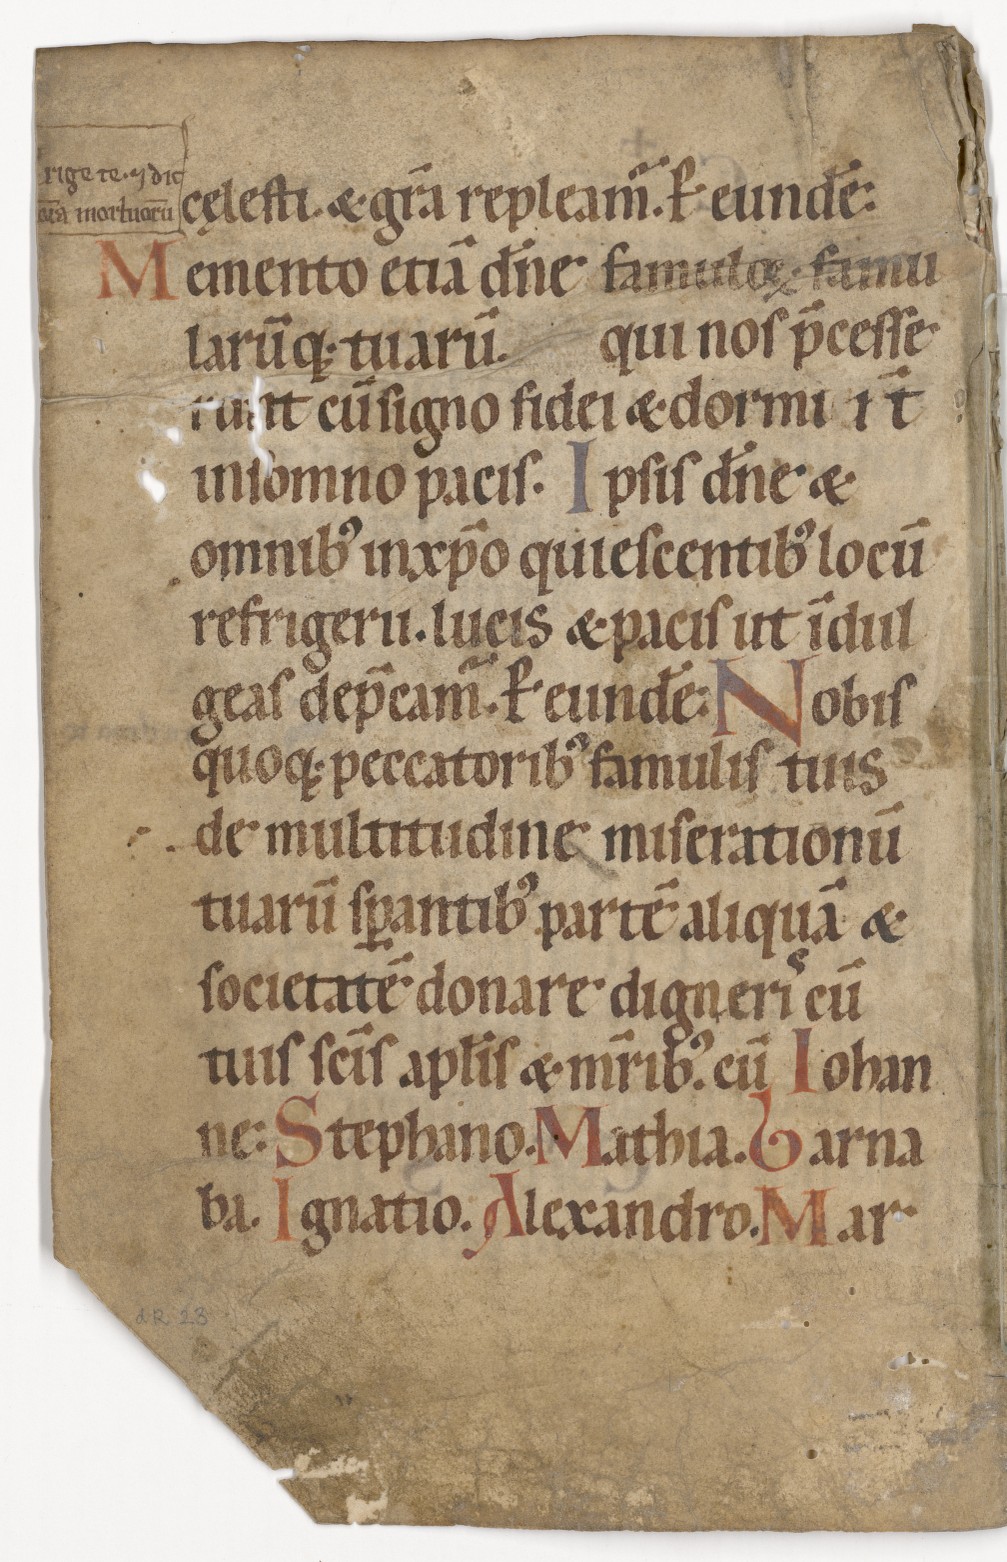 rige te. ⁊ dic
orā mortuorū
cęlesti. & gr̄a repleam̄. P̄ eundē:
Memento etiā dn̄e famuloꝝ. famu
larūq; tuarū. qui nos p̄cesse
runt cū signo fidei & dormi ı t̄
in somno pacis. Ipsis dn̄e &
omnibꝰ in xp̄o quiescentibꝰ locū
refrigerii. lucis & pacis ut īdul
geas dep̄cam̄. P̄ eundē: Nobis
quoq; peccatoribꝰ famulis tuis
de multitudine miserationū
tuarū sꝑantibꝰ partē aliquā &
societatē donare digneris cū
tuis scīs apl̄is & mr̄ibꝰ. cū Iohan
ne: Stephano. Mathia. Barna
ba. Ignatio. Alexandro. Mar
d.R. 23